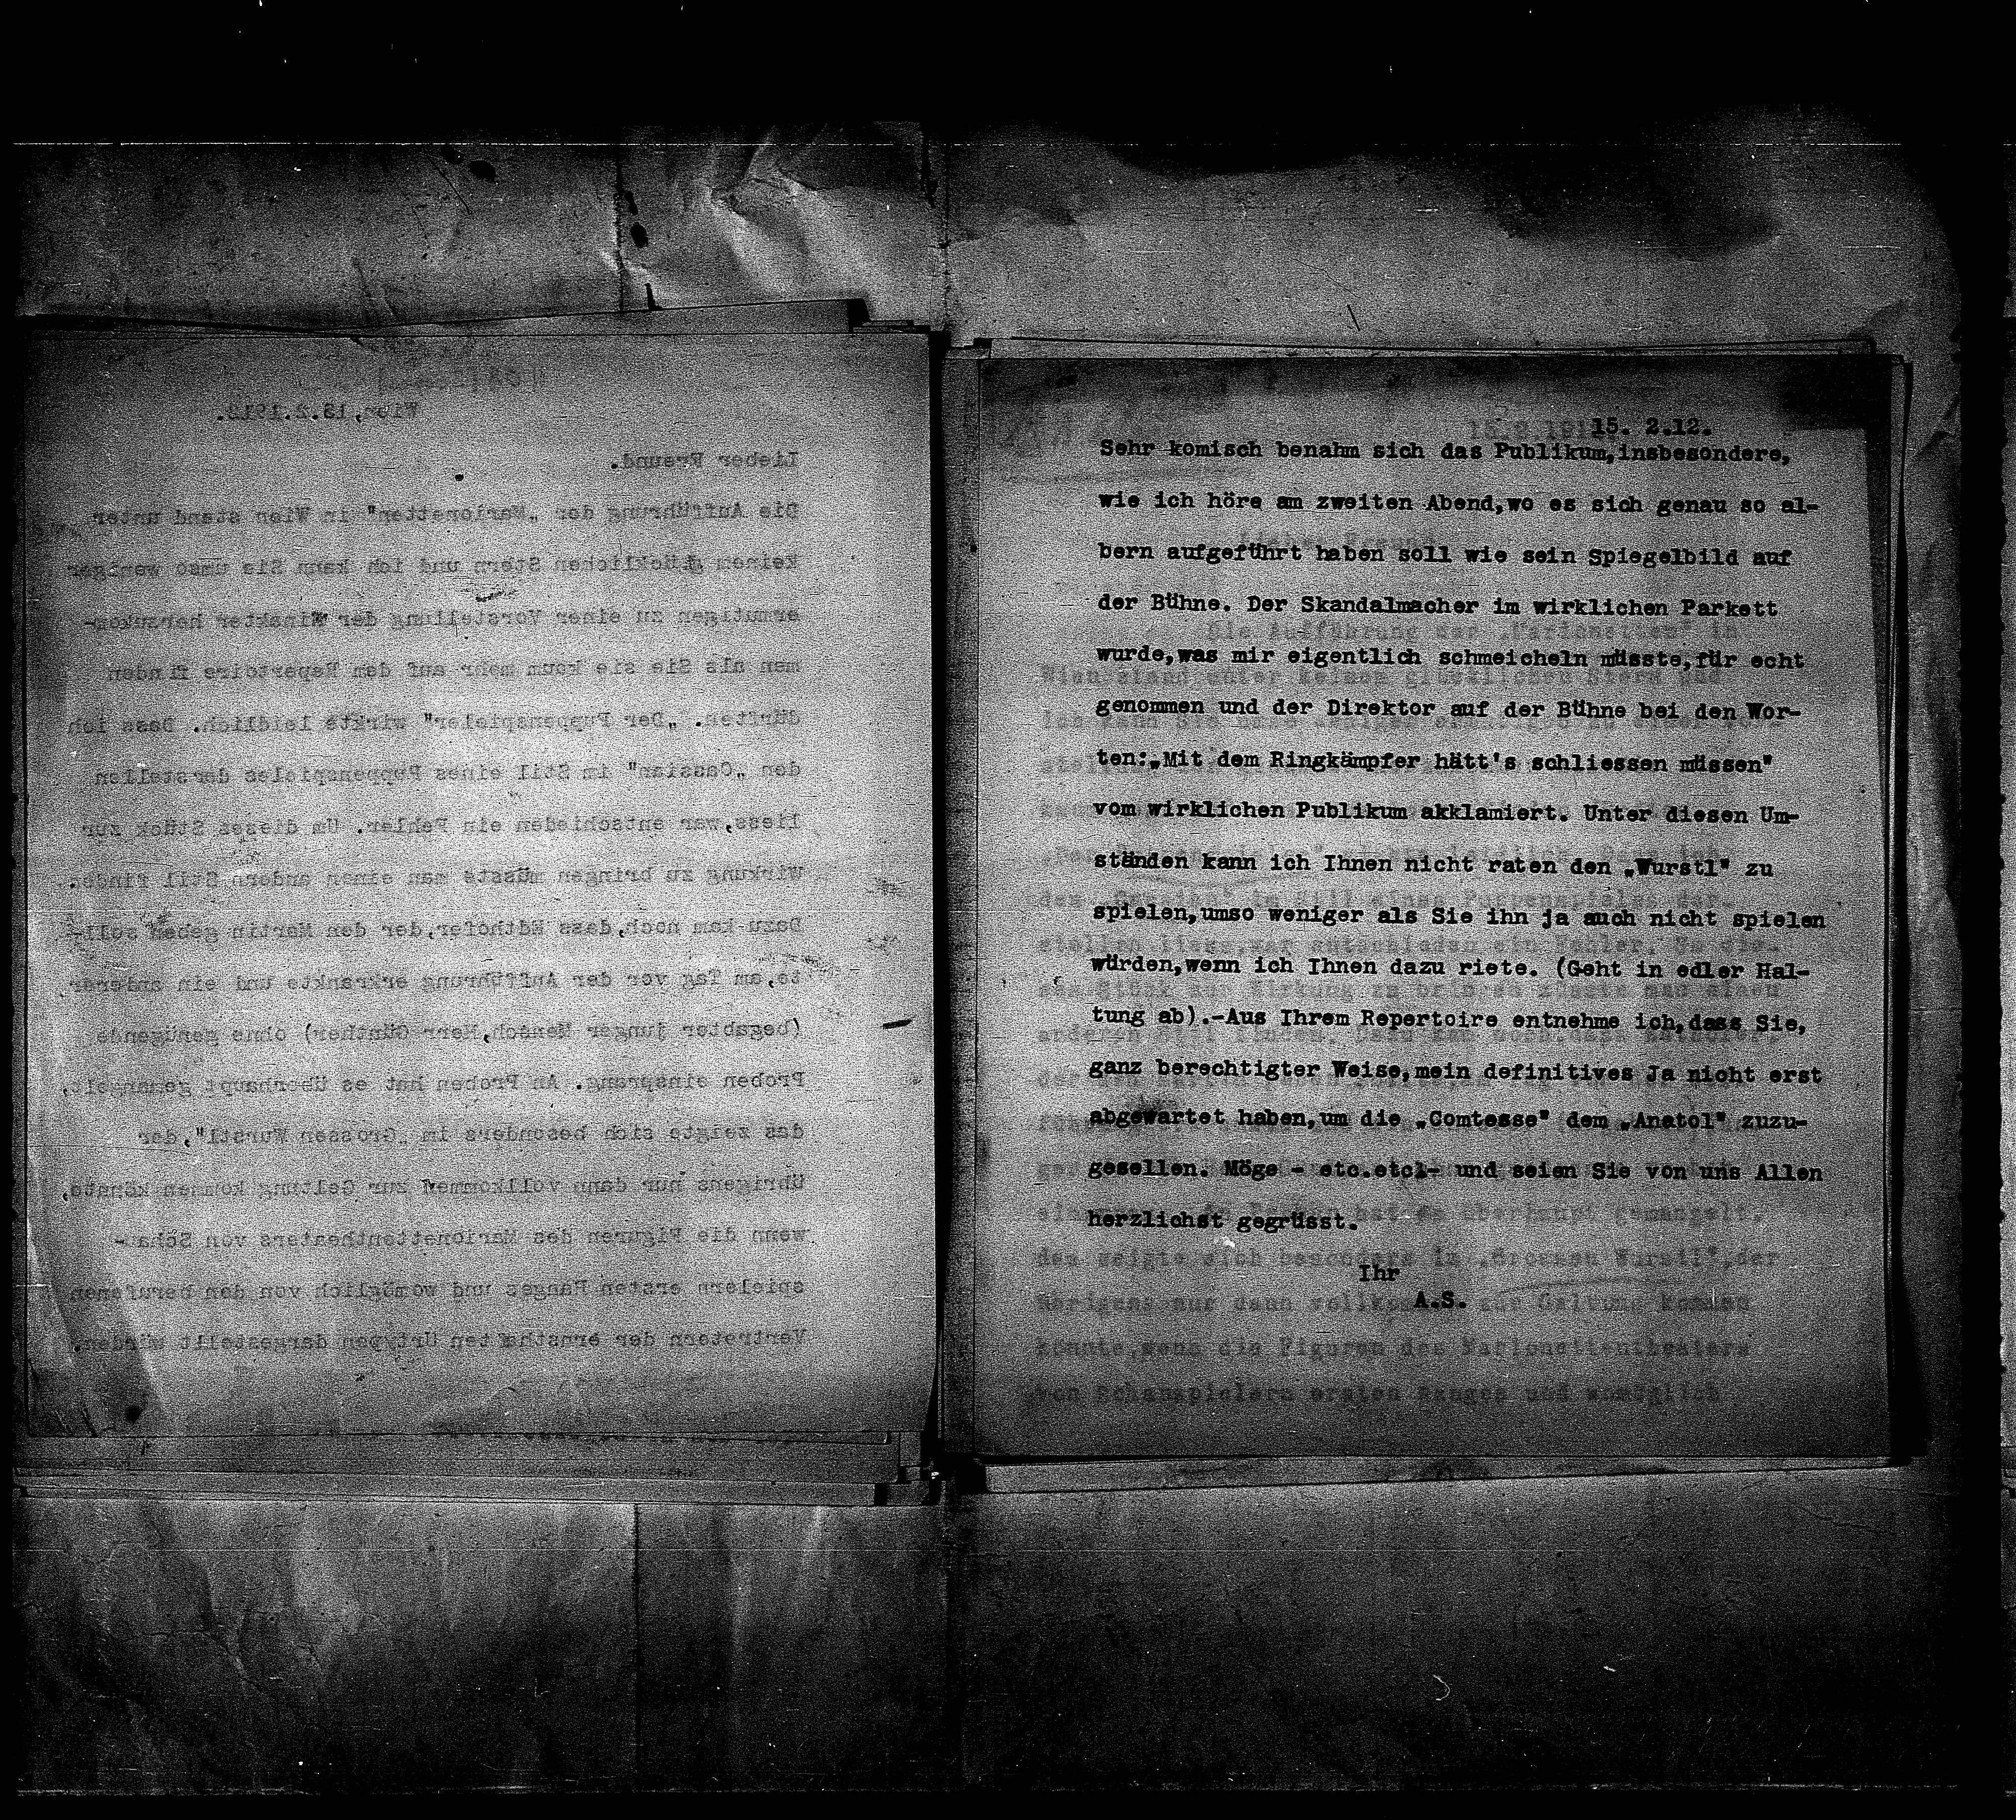 Wien,15.2.1912.
Lieber Freund.
Die Aufführung der „Marionetten" in Wien stand unter
keinem glücklichen Stern und ich kann Sie umso weniger
ermutigen zu einer Vorstellung der Einakter herzukom-
men als Sie sie kaum mehr auf dem Repertoire finden
dürften. „Der Puppenspieler" wirkte leidlich. Dass ich
den „Cassian" im Stil eines Puppenspieles darstellen
liess,war entschieden ein Fehler. Um dieses Stück zur
Wirkung zu bringen müsste man einen andern Stil finden.
Dazu kam noch,dass Edthofer,der den Martin geben soll-
te,am Tag vor der Aufführung erkrankte und ein anderer
(begabter junger Mensch,Herr Günther) ohne genügende
Proben einsprang. An Proben hat es überhaupt gemangelt,
das zeigte sich besonders im „Grossen Wurstl",der
übrigens nur dann vollkommen zur Geltung kommen könnte,
wenn die Figuren des Marionettentheaters von Scha -
spielern ersten Ranges und womöglich von den berufenen
Vertretern der ernsthaften Urtypen dargestellt würden.
15. 2.12.
Sehr komisch benahm sich das Publikum,insbesondere,
wie ich höre am zweiten Abend,wo es sich genau so al-
bern aufgeführt haben soll wie sein Spiegelbild auf
der Bühne. Der Skandalmacher im wirklichen Parkett
wurde,was mir eigentlich schmeicheln müsste,für echt
genommen und der Direktor auf der Bühne bei den Wor-
ten:„Mit dem Ringkämpfer hätt's schliessen müssen"
vom wirklichen Publikum akklamiert. Unter diesen Um-
ständen kann ich Ihnen nicht raten den „Wurstl" zu
spielen,umso weniger als Sie ihn ja auch nicht spielen
würden,wenn ich Ihnen dazu riete. (Geht in edler Hal-
tung ab).-Aus Ihrem Repertoire entnehme ich,dass Sie,
ganz berechtigter Weise,mein definitives Ja nicht erst
abgewartet haben,um die „Comtesse" dem „Anatol" zuzu-
gesellen. Möge - etc.etc.- und seien Sie von uns Allen
herzlichst gegrüsst.
Ihr
A.S.